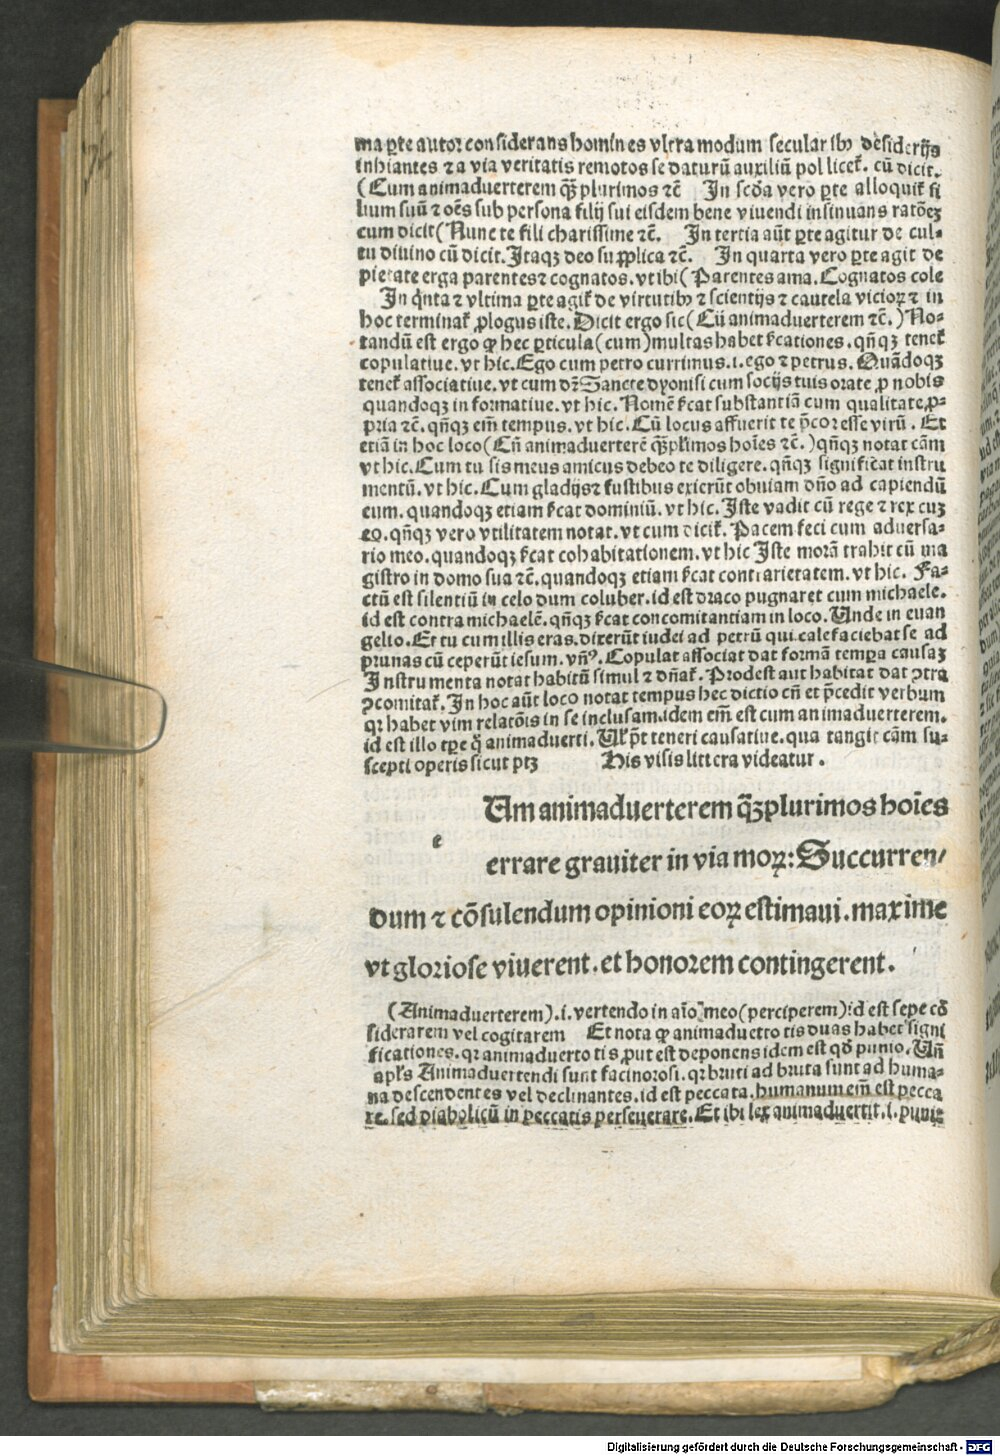 ma ꝑte autor considerans homines vltra modum secularibꝰ desiderijs
inhiantes ⁊ a via veritatis remotos se daturū auxiliū pollicet᷑. cū dicit.
(Cum animaduerterem qꝫ̄ plurimos ⁊c̄ In scd̓a vero ꝑte alloquit᷑ fi
lium suū ⁊ oēs sub persona filij sui eisdem bene viuendi insinuans ratōeꝫ
cum dicit (Nunc te fili charissime ⁊c̄. In tertia aūt ꝑte agitur de cul-
tu diuino cū dicit. Itaqꝫ deo supplica ⁊c̄. In quarta vero ꝑte agit de
pietate erga parentes ⁊ cognatos. vt ibi (Parentes ama. Cognatos cole
In qͥnta ⁊ vltima ꝑte agit᷑ de virtutibꝰ ⁊ scientijs ⁊ cautela vicioꝝ ⁊ in
hoc terminat᷑ ꝓlogus iste. Dicit ergo sic (Cū animaduerterem ⁊c̄.) No-
tandū est ergo ꝙ hec ꝑticula (cum) multas habet sͥcationes. qn̄qꝫ tenet᷑
copulatiue. vt hic. Ego cum petro currimus .i. ego ⁊ petrus. Quādoqꝫ
tenet᷑ associatiue. vt cum dr̄ Sancte dyonisi cum socijs tuis orate ꝓ nobis
quandoqꝫ informatiue. vt hic. Nomē sͥcat substantiā cum qualitate ꝓ-
pria ⁊c̄. qn̄qꝫ em̄ tempus. vt hic. Cū locus affuerit te p̄cor esse virū. Et
etiā in hoc loco (Cū animaduerterē qꝫ̄ pl̓imos hoīes ⁊c̄.) qn̄qꝫ notat cām
vt hic. Cum tu sis meus amicus debeo te diligere. qn̄qꝫ significat instru
mentū. vt hic. Cum gladijs ⁊ fustibus exierūt obuiam dn̄o ad capiendū
eum. quandoqꝫ etiam sͥcat dominiū. vt hic. Iste vadit cū rege ⁊ rex cuꝫ
eo. qn̄qꝫ vero vtilitatem notat. vt cum dicit᷑. Pacem feci cum aduersa-
rio meo. quandoqꝫ sͥcat cohabitationem. vt hic Iste morā trahit cū ma
gistro in domo sua ⁊c̄. quandoqꝫ etiam sͥcat contrarietatem. vt hic. Fa-
ctū est silentiū in celo dum coluber. id est draco pugnaret cum michaele.
id est contra michaelē. qn̄qꝫ sͥcat concomitantiam in loco. Unde in euan
gelio. Et tu cum illis eras. dixerūt iudei ad petrū qui calefaciebat se ad
prunas cū ceperūt iesum. vn̄ꝰ. Copulat associat dat formā tempꝑa causaꝫ
Instrumenta notat habitū simul ⁊ dn̄at᷑. Prodest aut habitat dat ꝯtra
ꝯcomitat᷑. In hoc aūt loco notat tempus hec dictio cū et p̄cedit verbum
qꝛ habet vim relatōis in se inclusam. idem em̄ est cum animaduerterem.
id est illo tꝑe qͦ animaduerti. Ul̓ pn̄t teneri causatiue. qua tangit cām su-
scepti operis sicut ptꝫ His visis littera videatur.
Um animaduerterem qꝫ̄plurimos hoīes
e
errare grauiter in via moꝝ: Succurren/
dum ⁊ cōsulendum opinioni eoꝝ estimaui. maxime
vt gloriose viuerent. et honorem contingerent.
(Animaduerterem) .i. vertendo in aīo meo (perciperem) id est sepe cō
siderarem vel cogitarem Et nota ꝙ animaduerto tis duas habet signi
ficationes. qꝛ animaduerto tis ꝓut est deponens idem est qd̓ punio. Un̄
apl̓s Animaduertendi sunt facinorosi. qꝛ bruti ad bruta sunt ad huma-
na descendentes vel declinantes. id est peccata. humanum em̄ est pecca
re. sed diabolicū in peccatis perseuerare. Et ibi lex animaduertit .i. punit
Digitalisierung gefördert durch die Deutsche Forschungsgemeinschaft - DFG